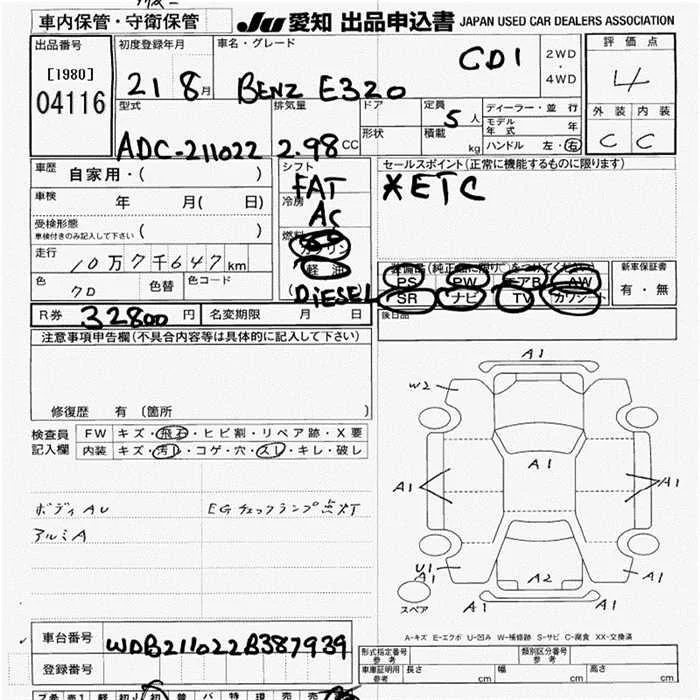 車内保管・守衛保管
JU 愛知 出品申込書 JAPAN USED CAR DEALERS ASSOCIATION
出品番号
[1980]
04116
初度登録年月
21 8月
車名・グレード
BENZ E320 CDI
2WD
・
4WD
評価点
4
外装 内装
C C
型式
ADC-211022
排気量
2.98 CC
ドア
形状
定員
5人
積載
kg
ディーラー・並行
モデル年式 年
ハンドル 左・右
車歴
自家用・( )
車検
年 月( 日)
受検形態
車検付きのみ記入して下さい ( )
走行
10万7千647km
色
7D
色替
色コード
シフト
FAT
冷房
AC
燃料
ガソリン
軽油
DIESEL
セールスポイント(正常に機能するものに限ります)
*ETC
装備品(純正品に限り○をつけてください)
PS PW エアB AW
SR ナビ TV カワシート
新車保証書
有・無
後日品
R券 32800円
名変期限 月 日
注意事項申告欄(不具合内容等は具体的に記入して下さい)
修復歴 有〔箇所 〕
検査員記入欄
FW キズ・飛石・ヒビ割・リペア跡・X要
内装 キズ・汚レ・コゲ・穴・スレ・キレ・破レ
ボディAU EGチェックランプ点灯
アルミA
A1
W2
A1
A1
A1
U1
A1
A2
A1
A1
A1
スペア
A-キズ E-エクボ U-凹み W-補修跡 S-サビ C-腐食 XX-交換済
車台番号
WDB211022B387939
登録番号
形式指定番号
参考
類別区分番号
参考
車庫証明用
参考
長さ cm 幅 cm 高さ cm